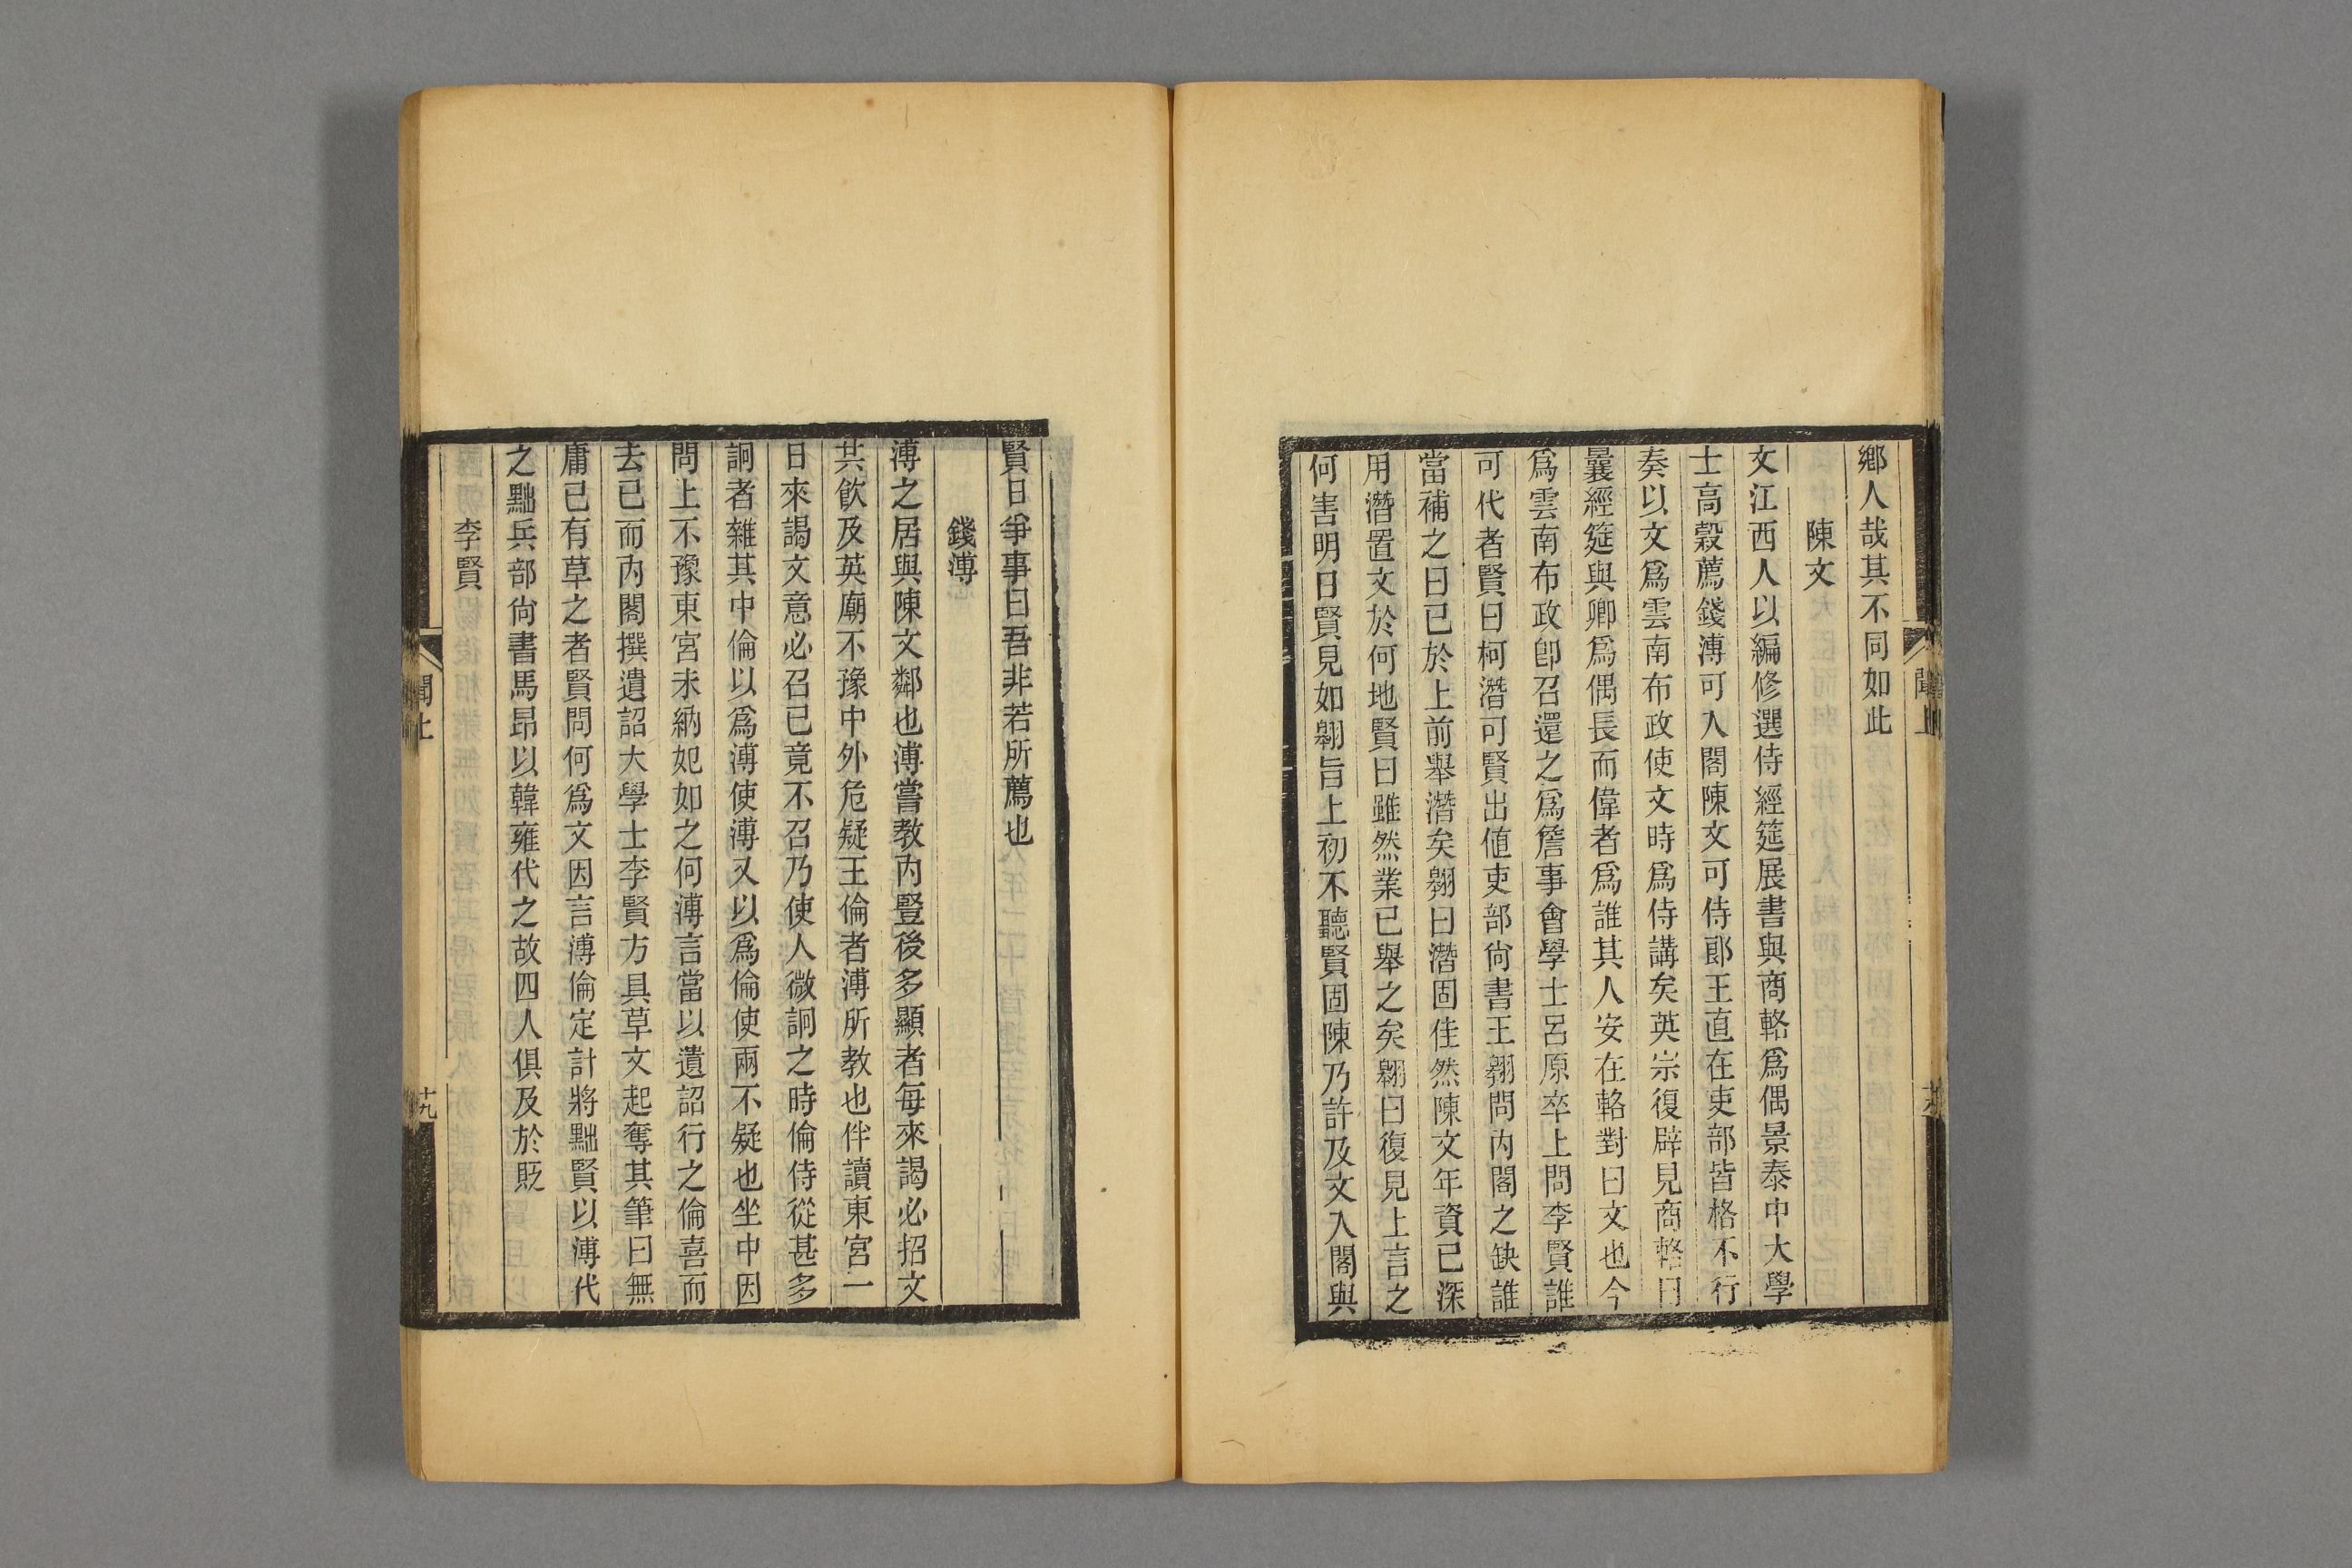 鄉人哉其不同如此
陳文
文江西人以編修選侍經筵展書與商輅爲偶景泰中大學
士高穀薦錢溥可入閣陳文可侍郎王直在吏部皆格不行
奏以文爲雲南布政使文時爲侍講矣英宗復辟見商輅曰
曩經筵與卿爲偶長而偉者爲誰其人安在輅對曰文也今
爲雲南布政卽召還之爲詹事會學士呂原卒上問李賢誰
可代者賢曰柯潛可賢出値吏部尙書王翱問內閣之缺誰
當補之曰已於上前舉潛矣翱曰潛固佳然陳文年資已深
用潛置文於何地賢曰雖然業已舉之矣翱曰復見上言之
何害明日賢見如翱旨上初不聽賢固陳乃許及文入閣與
賢日爭事曰吾非若所薦也
錢溥
溥之居與陳文鄰也溥嘗敎內豎後多顯者每來謁必招文
共飮及英廟不豫中外危疑王倫者溥所敎也伴讀東宮一
日來謁文意必召已竟不召乃使人微詗之時倫侍從甚多
詗者雜其中倫以爲溥使溥又以爲倫使兩不疑也坐中因
問上不豫東宮未納妃如之何溥言當以遺詔行之倫喜而
去已而內閣撰遺詔大學士李賢方具草文起奪其筆曰無
庸已有草之者賢問何爲文因言溥倫定計將黜賢以溥代
之黜兵部尙書馬昂以韓雍代之故四人俱及於貶
李賢
聞上
十九